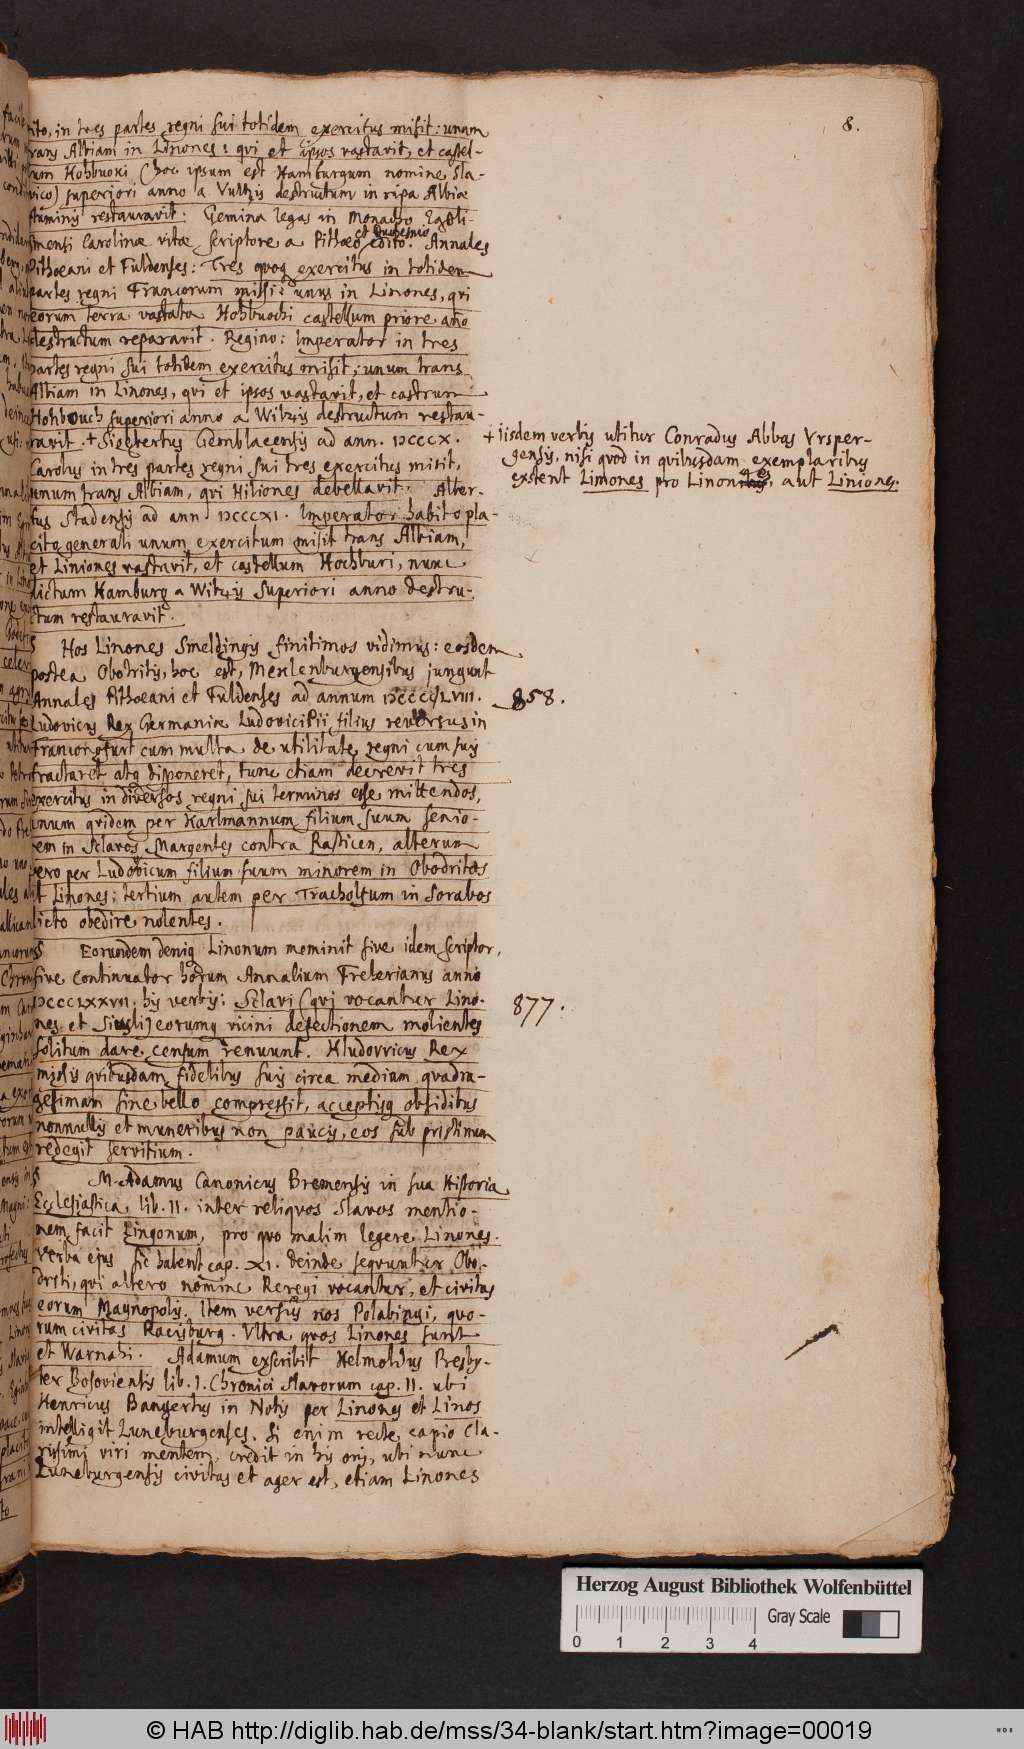 8.
cito, in tres partes regni sui totidem exercitus misit: unum
trans Albiam in Linones: qui et ipsos vastavit, et castel-
lum Hohbuoki (hoc ipsum est Hamburgum nomine Sla-
vico) superiori anno a Vultzis destructum in ripa Albiæ
fluminis restauravit. Gemina legas in Monacho Egoli-
smensi Carolinæ vitæ scriptore a Pithœo et Duchesnio edito. Annales
Pithœani et Fuldenses: Tres quoq exercitus in totidem
partes regni Francorum missi: unus in Linones, qui
eorum terra vastata Hohbuochi castellum priore año
destructum reparavit. Regino: Imperator in tres
partes regni sui totidem exercitus misit, unum trans
Albiam in Linones, qui et ipsos vastavit, et castrum
Hohbouch superiori anno a Witzis destructum restau-
ravit. + Sigebertus Gemblacensis ad ann. DCCCX.
Carolus in tres partes regni sui tres exercitus misit,
unum trans Albiam, qui Hiliones debellavit. Alber-
tus Stadensis ad ann DCCCXI. Imperator habito pla-
cito generali unum exercitum misit trans Albiam,
et Liniones vastavit, et castellum Hochburi, nunc
dictum Hamburg a Witzis superiori anno destru-
ctum restauravit.
+ Iisdem verbis utitur Conradus Abbas Ursper-
gensis, nisi quod in quibusdam exemplaribus
extent Limones pro Linones, aut Liniones.
§ Hos Linones Smeldingis finitimos vidimus: eosdem
postea Obotritis, hoc est, Meklenburgensibus jungunt
Annales Pithœani et Fuldenses ad annum DCCCCLVIII.
858.
Ludovicus Rex Germaniæ Ludovici Pii filius reversus in
Franconofurt cum multa de utilitate regni cum suis
tractaret atq disponeret, tunc etiam decrevit tres
exercitus in diversos regni sui terminos esse mittendos,
unum quidem per Karlmannum filium suum senio-
rem in Sclavos Margentes contra Rasticen, alterum
vero per Ludovicum filium suum minorem in Obodritas
et Linones; tertium autem per Tracholfum in Sorabos
dicto obedire nolentes.
§ Eorundem deniq Linonum meminit sive idem scriptor,
sive continuator horum Annalium Freherianus anno
DCCCLXXVII. his verbis: Sclavi (qui vocantur Lino-
877.
nes et Siusli) eorumq vicini defectionem molientes
solitum dare censum renuunt. Hludovvicus Rex
missis quibusdam fidelibus suis circa mediam quadra-
gesimam sine bello compressit, acceptisq obsidibus
nonnullis et muneribus non paucis, eos sub pristinum
redegit servitium.
§ M. Adamus Canonicus Bremensis in sua Historia
Ecclesiastica, lib. II. inter reliquos Slavos mentio-
nem facit Lingonum, pro quo malim legere Linones.
Verba ejus sic habent cap. XI. Deinde sequuntur Obo-
driti, qui altero nomine Reregi vocantur, et civitas
eorum Magnopolis. Item versus nos Polabingi, quo-
rum civitas Racisburg. Ultra quos Linones sunt
et Warnahi. Adamum exscribit Helmoldus Presby-
ter Bosoviensis lib. I. Chronici Slavorum cap. II. ubi
Henricus Bangertus in Notis per Linones et Linos
intelligit Luneburgenses. Si enim recte capio Cla-
rissimi viri mentem, credit in his oris, ubi nunc
Luneburgensis civitas et ager est, etiam Linones
Herzog August Bibliothek Wolfenbüttel
Gray Scale
0 1 2 3 4
© HAB http://diglib.hab.de/mss/34-blank/start.htm?image=00019